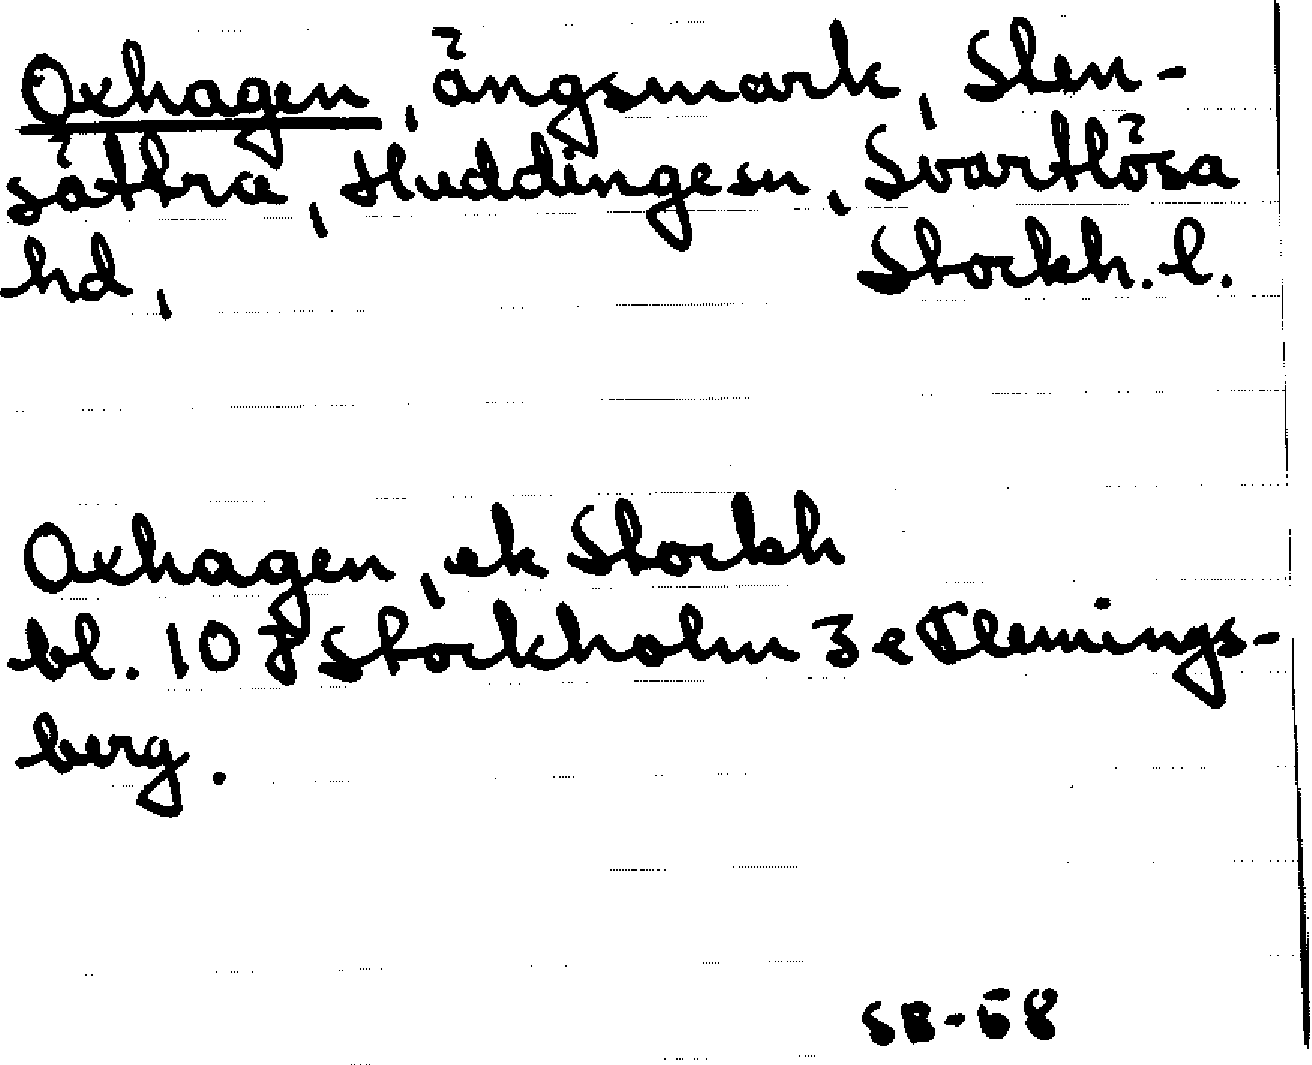 Oxhagen, ängsmark, Sten-
sättra, Huddinge sn, Svartlösa
hd, Stockh. l.
Oxhagen, ek Stockh
bl. 10 J Stockholm 3 e Flemings-
berg.
SB-58